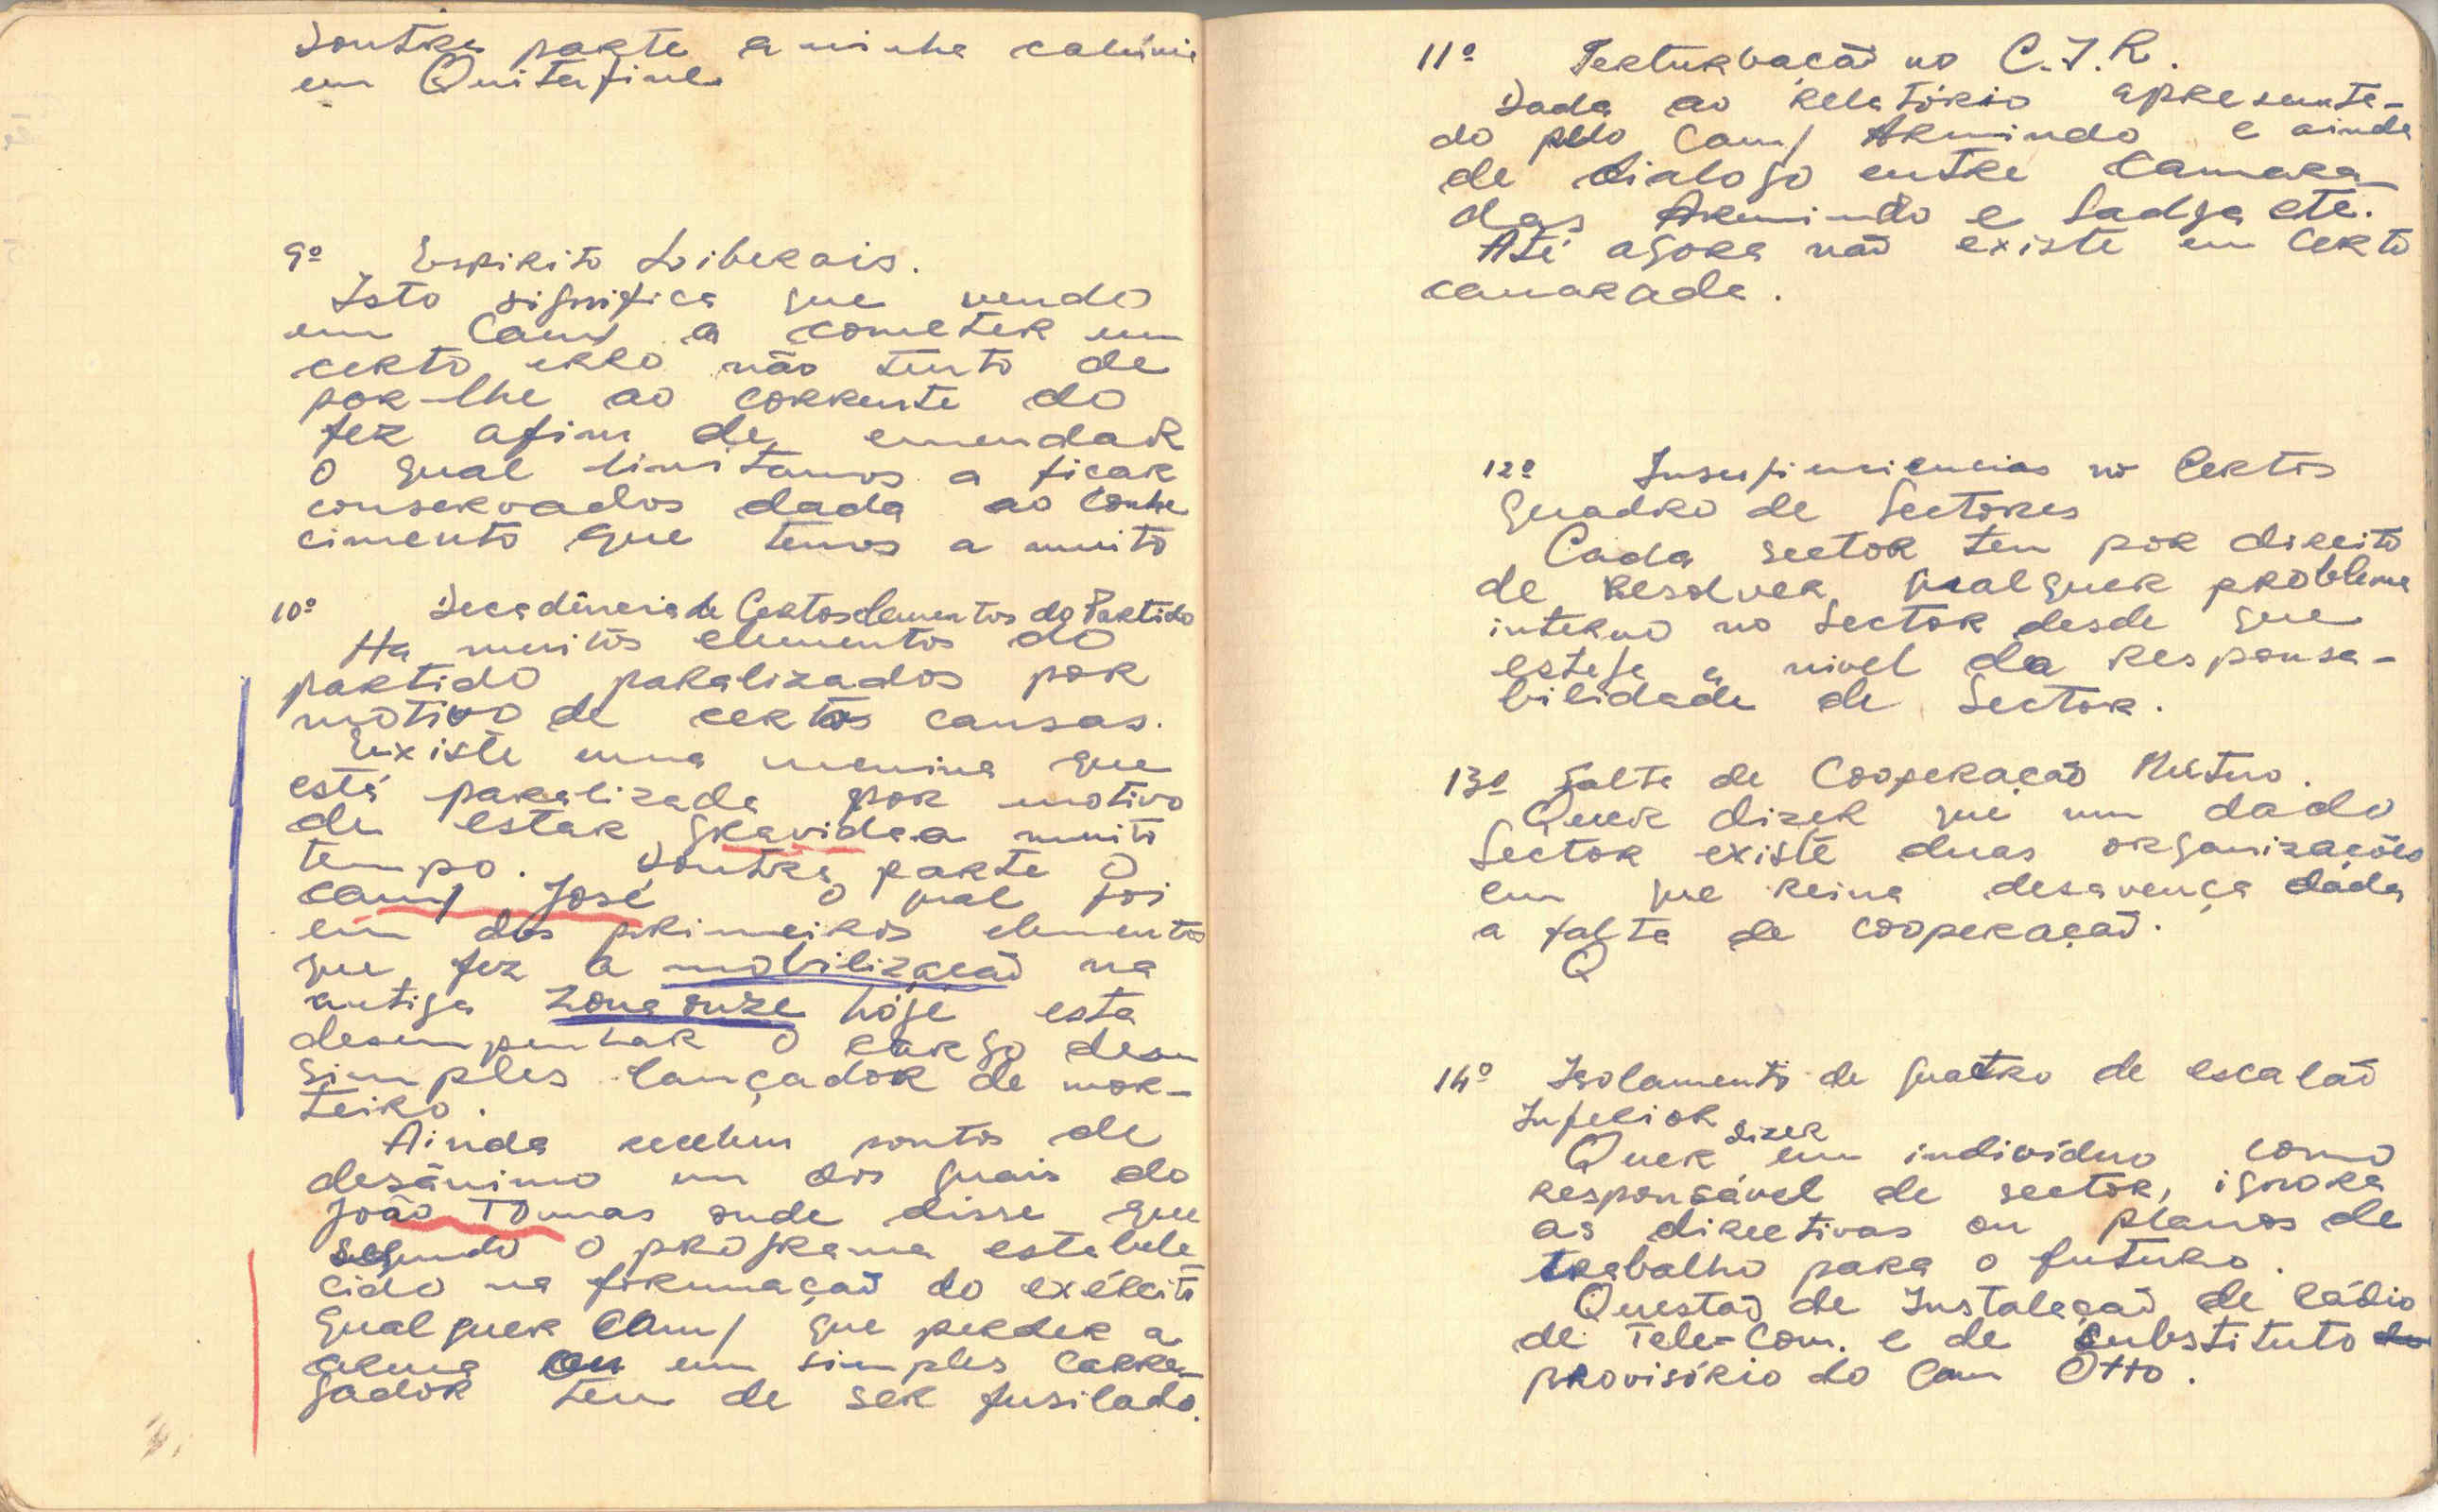 Doutra parte a minha calúnia
em Quitafine
9º Espirito Liberais.
Isto significa que vendo
um Cam/ a cometer um
certo erro não tento de
por-lhe ao corrente do
fez afim de emendar
o qual limitamos a ficar
conservados dada ao conhe
cimento que temos a muito
10º Decadência de Certos elementos do Partido
Ha muitos elementos do
partido paralizados por
motivo de certas causas.
Existe uma menina que
está paralizada por motivo
de estar gravida a muito
tempo. Doutra parte o
cam/ José o qual foi
um dos primeiros elementos
que fez a mobilização na
antiga zona onze hoje esta
desempenhar o cargo de um
simples lançador de mor-
teiro.
Ainda recebem pontos de
desânimo um dos quais do
João Tomas onde disse que
segundo o programa estabele
cido na formação do exército
qualquer Cam/ que perder a
arma ou um simples carre-
gador tem de ser fusilado.
11º Perturbação no C.I.R.
Dada ao relatório apresenta-
do pelo Cam/ Armindo e ainda
de dialogo entre Camara-
das Armindo e Sadja etc.
Até agora não existe um certo
camarada.
12º no Certos
quadro de Sectores
Cada sector tem por direito
de resolver qualquer problema
interno no Sector desde que
esteja a nivel da responsa-
bilidade de Sector.
13º Falta de Cooperação Mútuo.
Quer dizer que um dado
Sector existe duas organizações
em que reina desavença dada
a falta de cooperação.
Q
14º Isolamento de quatro de escalão
Inferior
Quer dizer um individuo como
responsável de sector, ignora
as directivas ou planos de
trabalho para o futuro.
Questão de Instalação de rádio
de Tele-Com. e de substituto do
provisório do Cam Otto.